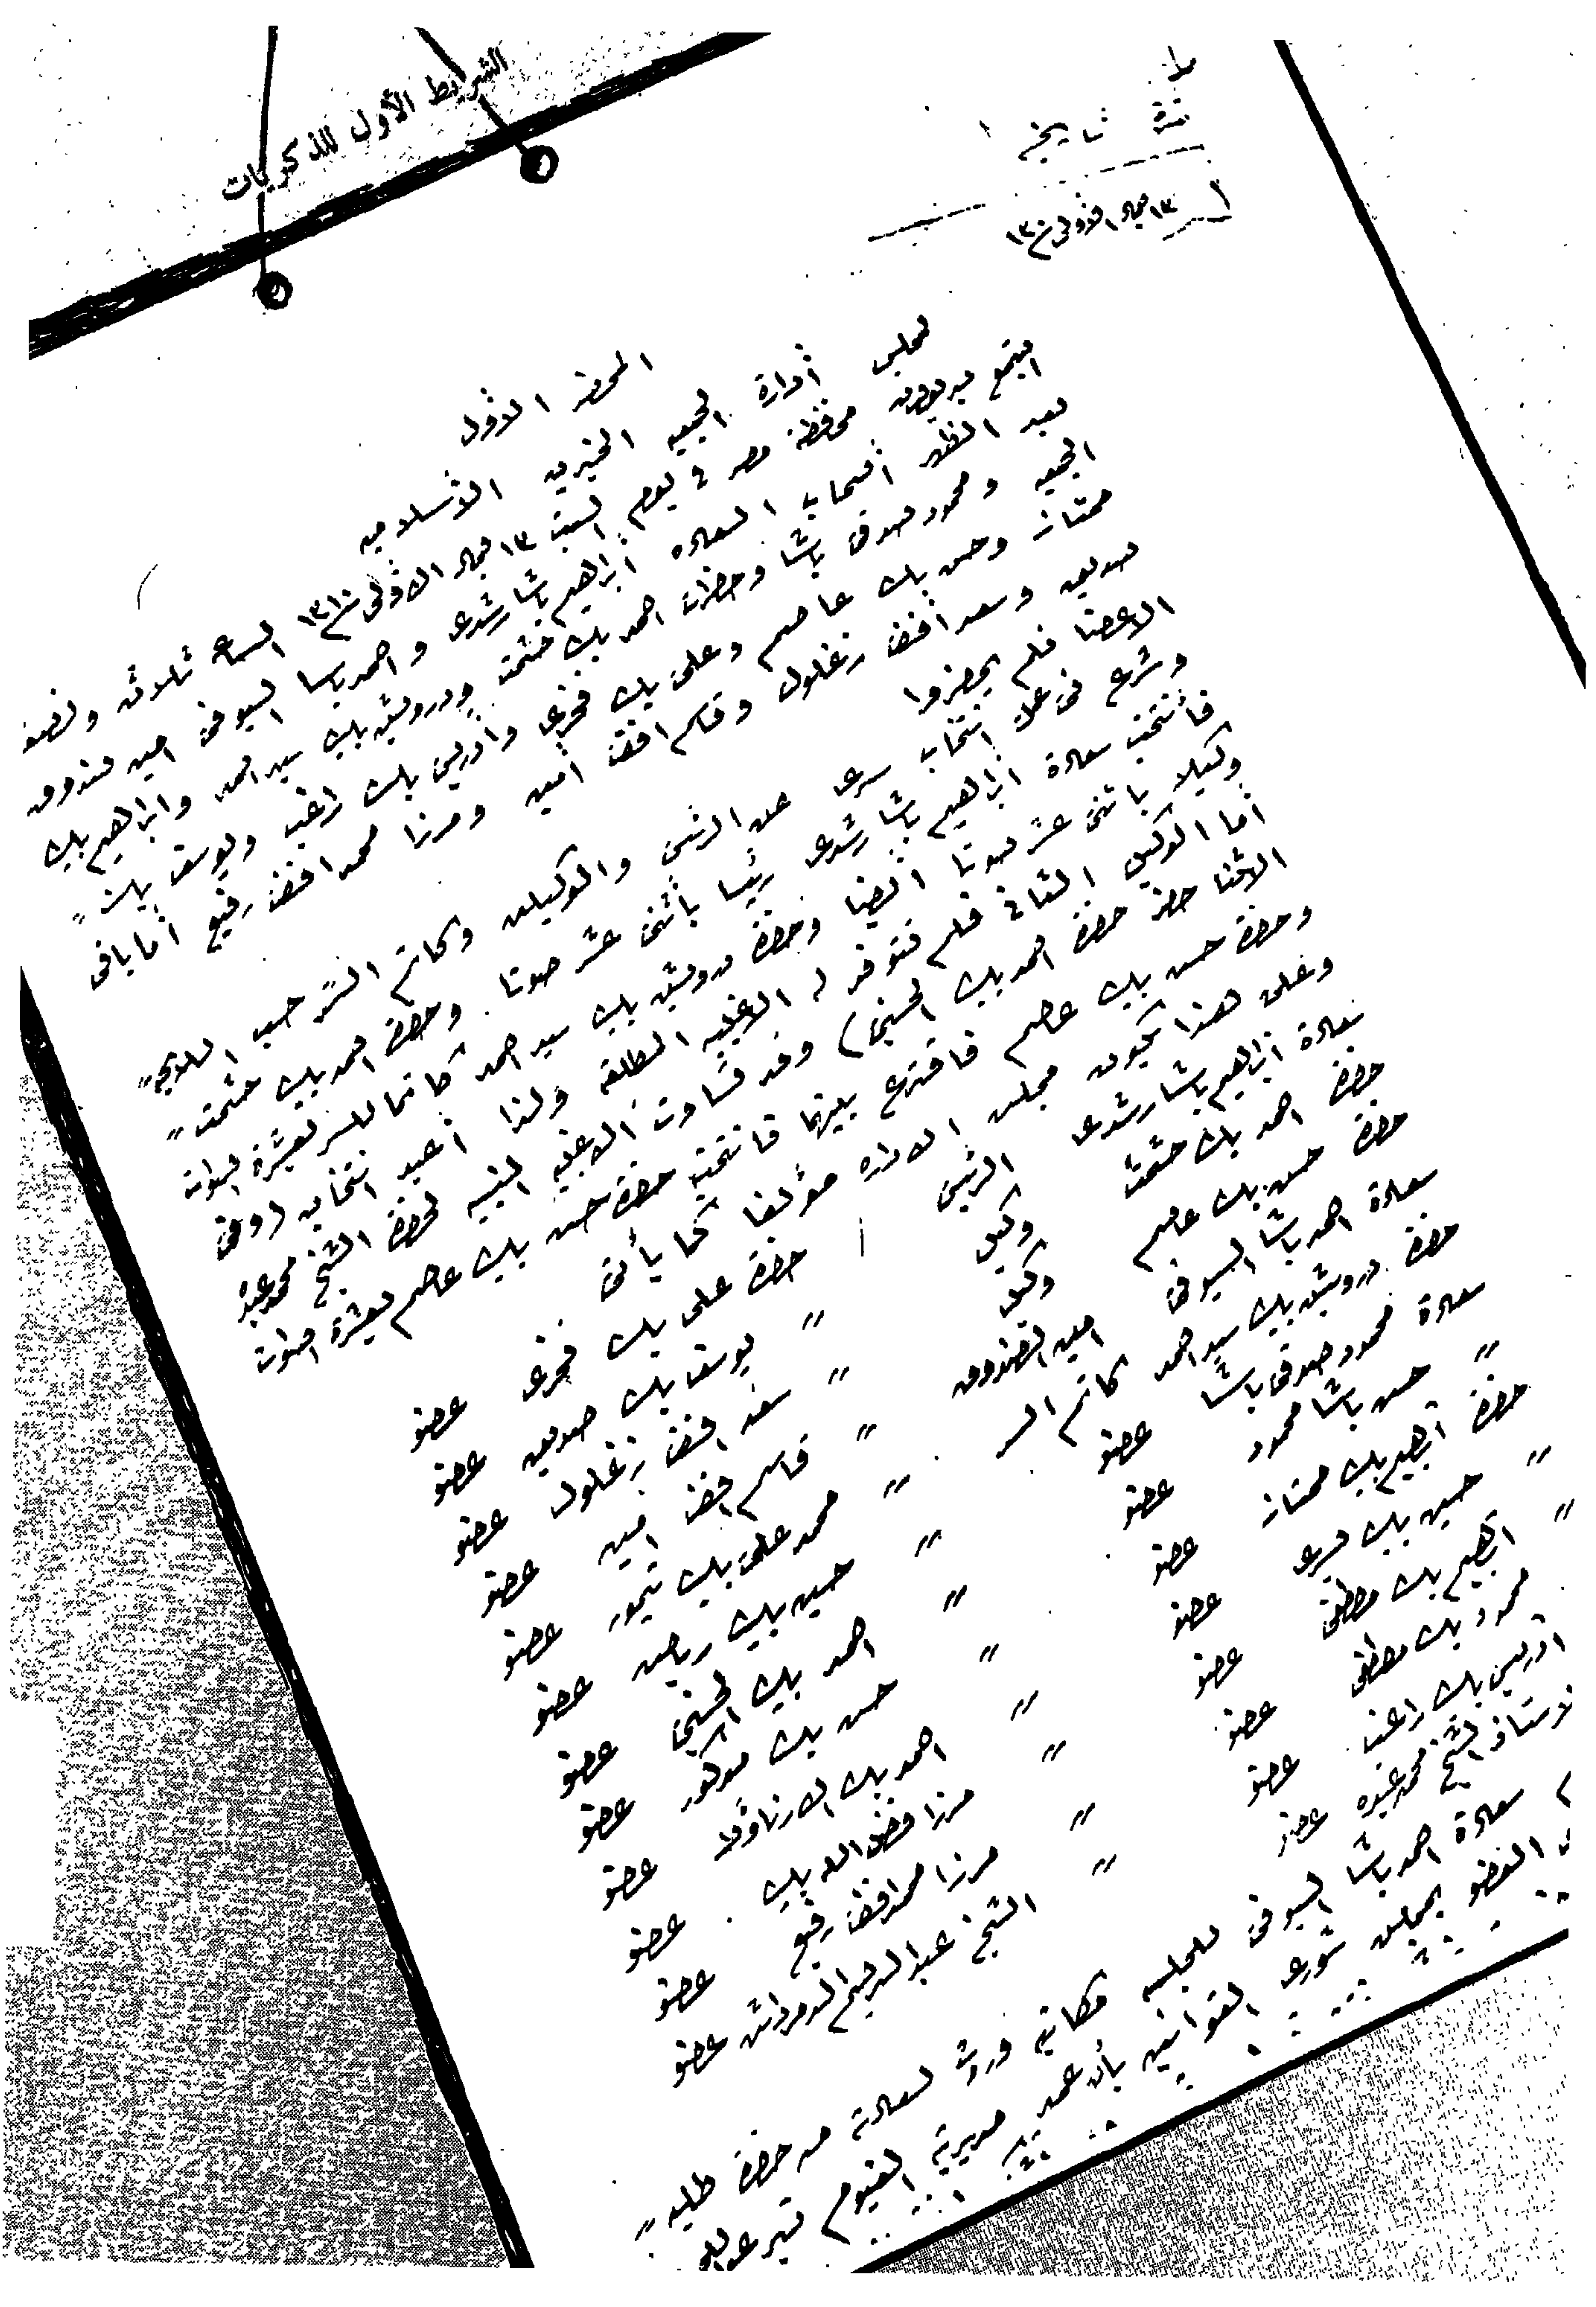 الشرايط الأول للذكريات
نمرة تاريخ
١٣ جماد الاولى سنة ١٣١٠
المحضر الاول
لمجلس أدارة الجمعيه الخيريه الاسلاميه
اجتمع بديوان محافظة مصر في يوم السبت ١٣ جماد الاولى سنة ١٣١٠ الساعه ثلاثه ونصف
بعد الظهر أصحاب السعاده ابراهيم باشا رشدى و احمد باشا السيوفى امين صندوق
الجمعيه ومحمود صدقى باشا وحضرات احمد بك حشمت ودرويش بك سيد احمد وابراهيم بك
ممتاز وحسن بك عاصم وعلى بك فخرى وادريس بك راغب ويوسف بك
صديق وسعد افندى زغلول وقاسم افندى أمين ومرزا محمد افندى رفيع أما باقى
الاعضا فلم يحضروا
وشرع فى عمل انتخاب سرى عن الرئيس والوكيلين وكاتم السر حسب اللائحه
فأنتخب سعادة ابراهيم باشا رشدى رئيسا باثنى عشر صوتا وحضرة احمد بك حشمت
وكيلا باثنى عشر صوتا ايضا وحضرة درويش بك سيد احمد كاتما للسر بعشرة اصوات
أما الوكيل الثانى فلم تتوفر له الاغلبيه المطلقه ولذا أعيد انتخابه (وفى
الاثنا حضر حضرة احمد بك الحسينى) وقد تساوت الاغلبيه النسبيه لحضرة الشيخ محمد عبده
وحضرة حسن بك عاصم فاقترع بينهما فانتخب حضرة حسن بك عاصم بعشرة اصوات
وعلى هذا يكون مجلس الاداره مؤلفا كما يأتى
سعادة ابراهيم باشا رشدى الرئيس
حضرة احمد بك حشمت وكيل
حضرة حسن بك عاصم وكيل
سعادة احمد باشا السيوفى امين الصندوق
حضرة درويش بك سيد احمد كاتم السر
سعادة محمود صدقى باشا عضو
" حسن باشا محمود عضو
حضرة ابراهيم بك ممتاز عضو
" حسين بك عضو
" ابراهيم بك مصطفى عضو
محمود بك مصطفى عضو
ادريس بك راغب عضو
الاستاذ الشيخ محمد عبده عضو
حضرة على بك فخرى عضو
" يوسف بك صديق عضو
" سعد افندى زغلول عضو
" قاسم افندى امين عضو
" محمد على بك تيمور عضو
" حسين بك رياض عضو
" احمد بك الحسينى عضو
" حسن بك مدكور عضو
" احمد بك الارناؤطى عضو
" مرزا فضل الله بك عضو
" مرزا محمد افندى رفيع عضو
" الشيخ عبد الرحيم الدمرداش عضو
سعادة احمد باشا السيوفى للمجلس مكاتبه وردت لسعادته من حضرة طلبه
العضو بمجلس شورى القوانين بأن عمد مديرية الفيوم